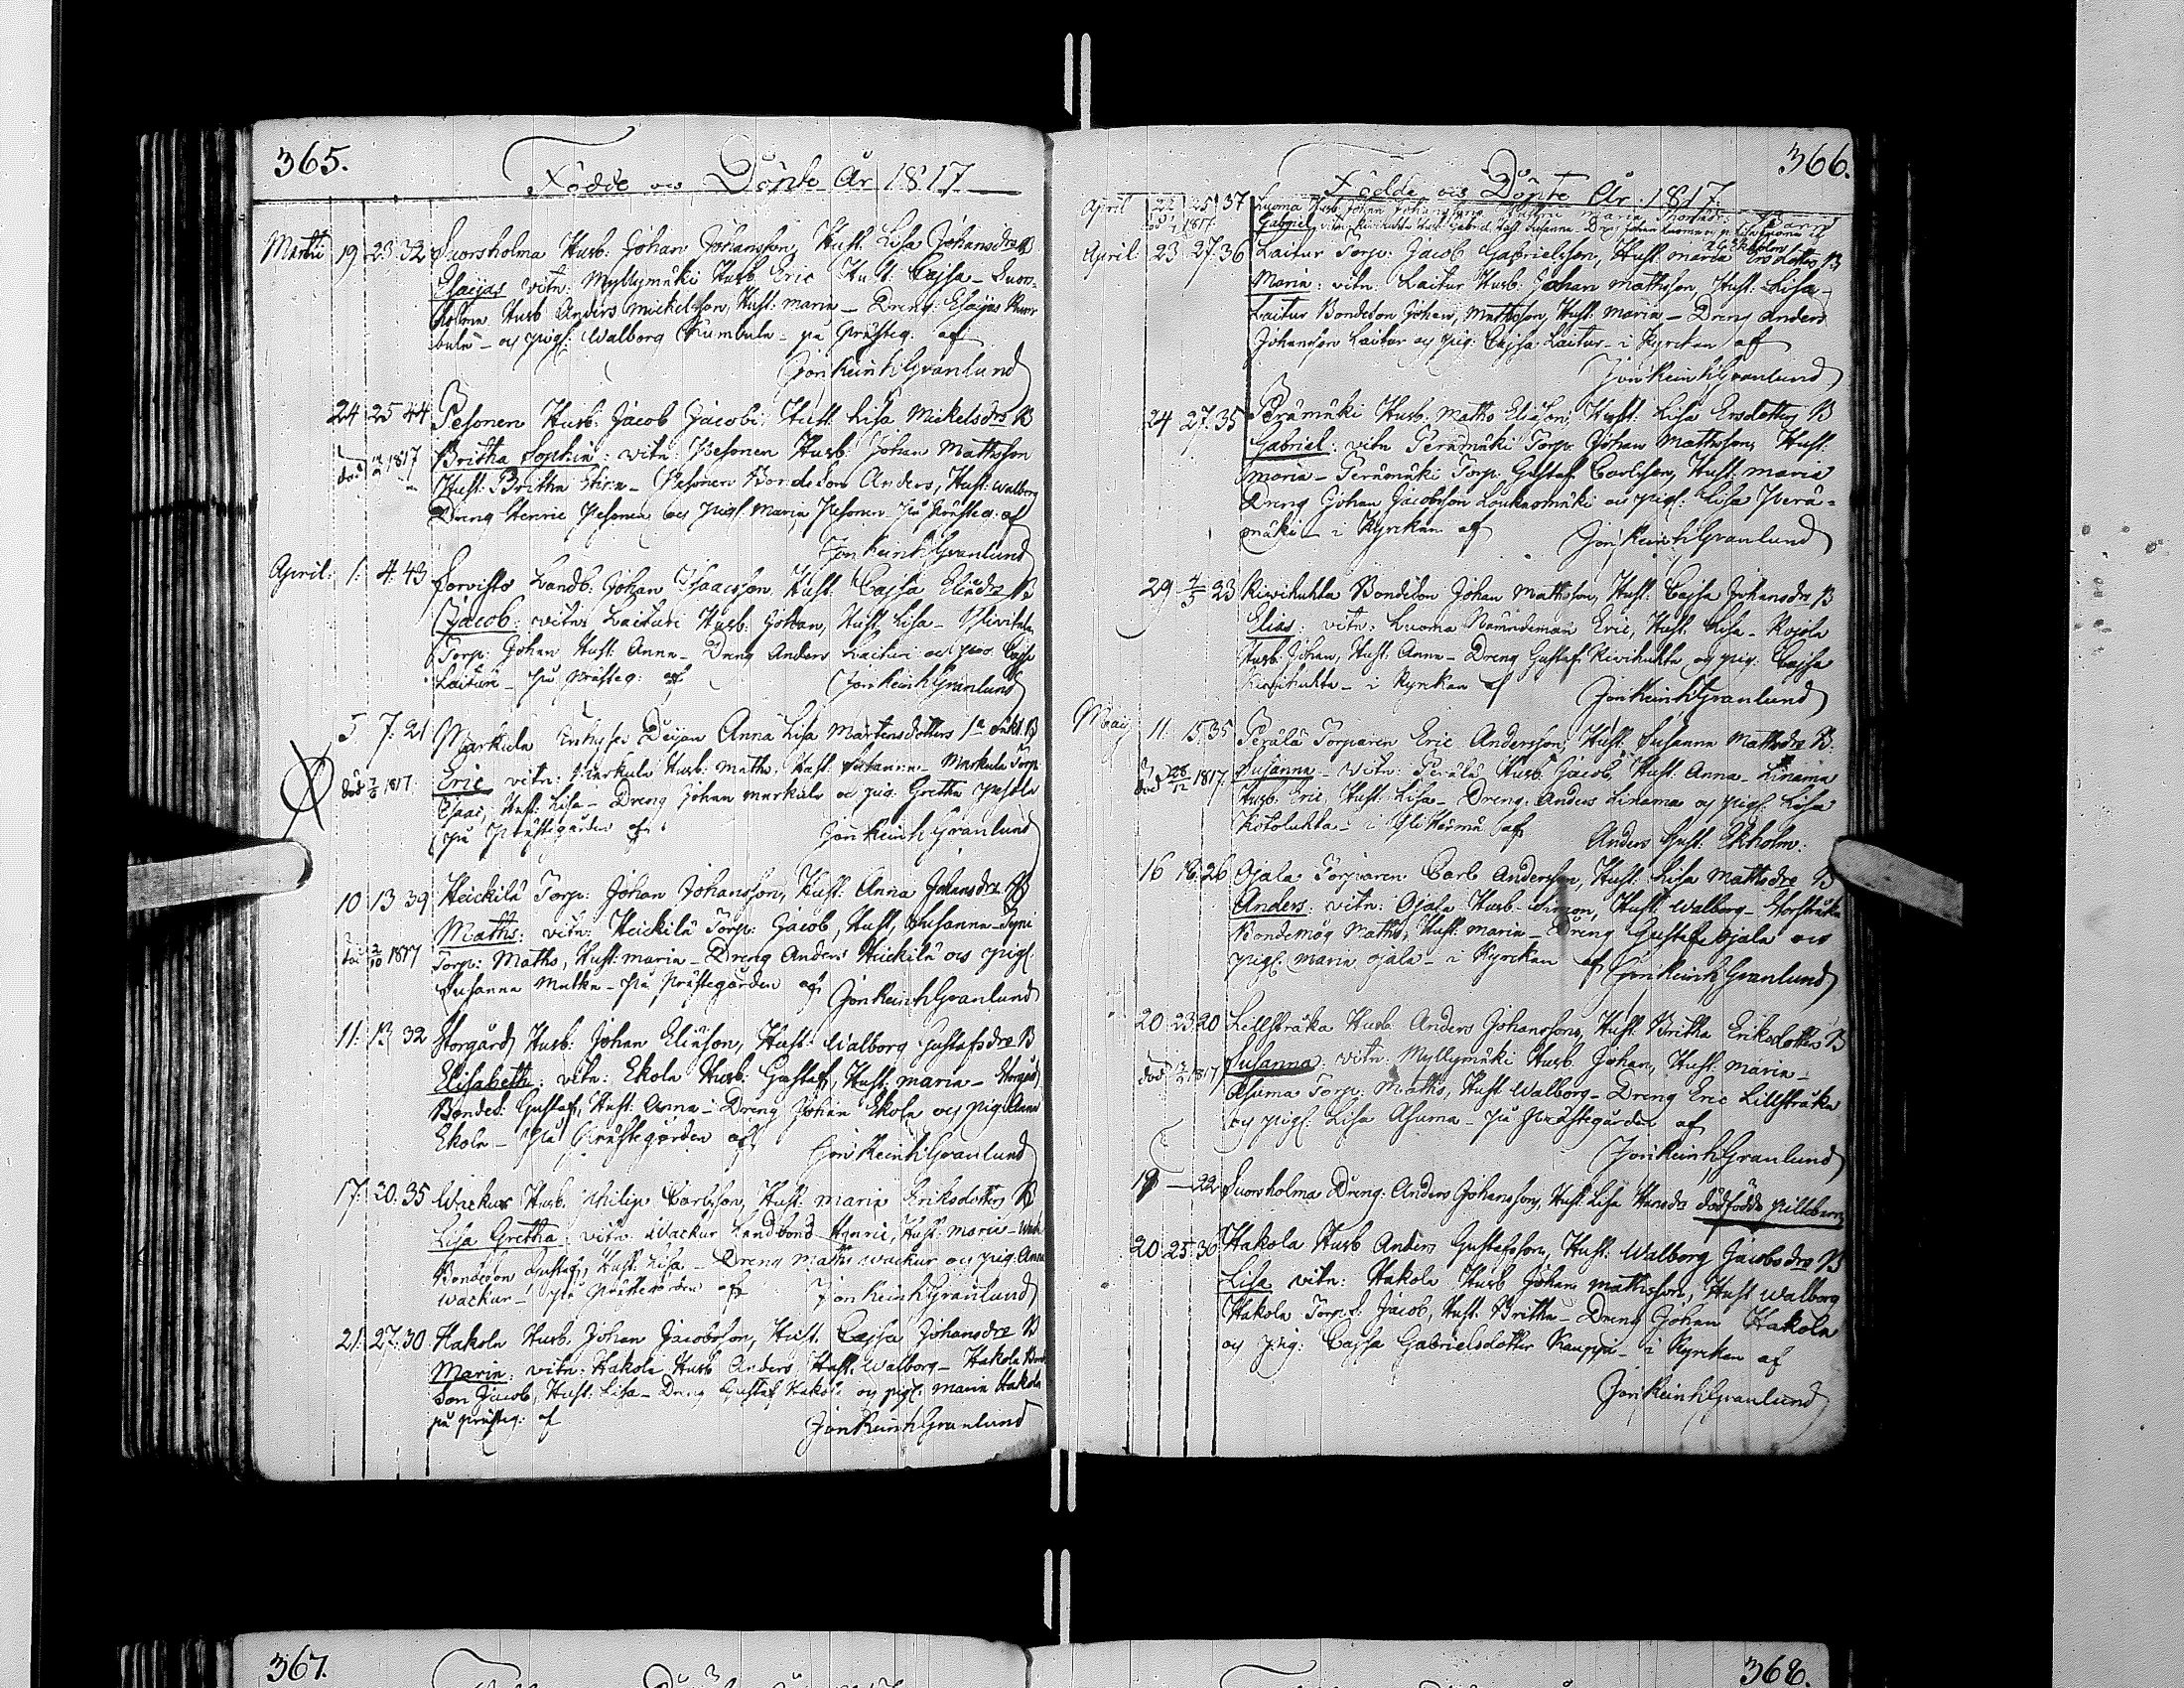 365.
Födde och Döpte År 1817
Martii 19 23. 32 Suorsholma Husb: Johan Johansson, Hust: Lisa Johansdr B
Esaijas vitn: Myllymäki Husb Eric Hust: Cajsa - Suors-
holma Husb Anders Mickelsson, Hust: Maria - Dreng: Esaijas
och pig: Walborg - på Prästeg: af
Jon Reinh Granlund
24 25 44 Pesonen Husb: Jacob Jacobi: Hust: Lisa Mickelsdr B
död 1817 Britha Sophia: vitn: Pesonen Husb: Johan Mathsson
Hust: Britha Stina - Pesonen Bondeson Anders, Hust: Walborg
Dreng Henric Pesonen och pig: Maria Pesonen på Prästeg. af
Jon Reinh Granlund
April: 1: 4. 43 Sorvisto Landb: Johan Isaacsson Hust: Cajsa Eliædr B
Jacob: vitn: Laituri Husb: Johan, Hust: Lisa -
Torp: Johan Hust: Anna - Dreng Anders Laituri och pig. Cajsa
Laituri - på Prästeg: af Jon Reinh Granlund
5. 7. 21 Markula Deijan Anna Lisa Mårtensdotters 1a B
död 1817 Eric vitn: Markula Husb: Maths, Hust: Susanna - Markula Torp
Esaac, Hust: Lisa - Dreng Johan Markula och pig: Gretha
på Prästegården af Jon Reinh Granlund
10 13 39 Heickilä Torp: Johan Johansson, Hust: Anna Johansdr B
Maths: vitn: Heickilä Torp: Jacob, Hust: Susanna -
1817 Torp: Maths, Hust: Maria - Dreng Anders Heickilä och pig:
Susanna - på Prästegården af Jon Reinh Granlund
11: 13 32 Storgård Husb: Johan Eliæson, Hust: Walborg Gustafsdr B
Elisabeth: vitn: Ekola Husb: Gustaf, Hust: Maria - Storgård
Bondes: Gustaf, Hust: Anna - Dreng Johan Ekola och pig: Anna
Ekola - på Prästegården af Jon Reinh Granlund
17: 20. 35 Wackur Husb: Philip Carlsson, Hust: Maria Eriksdotter B
Lisa Gretha: vitn: Wackur Landbond Henric, Hust: Maria -
Bondeson Gustaf, Hust: Lisa - Dreng Maths Wackur och pig: Anna
Wackur - på Prästegården af Jon Reinh Granlund
21: 27: 30 Hakola Husb: Johan Jacobsson, Hust: Cajsa Johansdr B
Maria: vitn: Hakola Husb Anders Hust: Walborg - Hakola Bonde
Son Jacob, Hust: Lisa - Dreng Gustaf Hakola och pig: Maria Hakola
på Prästeg: af Jon Reinh Granlund
366.
Födde och Döpte År 1817.
April 25 37 Luoma Husb Johan Johansson Hustru Maria Barn
1817 Gabriel vitn Husb Gabriel Hust Susanna - Dreng Johan Luoma
April 23 27. 36 Laitur Torp: Jacob Gabrielsson, Hust: Maria Ersdotter B
Maria: vitn: Laitur Husb: Johan Mathsson, Hust: Lisa -
Laitur Bondeson Johan Mathsson, Hust: Maria - Dreng Anders
Johansson Laitur och pig: Cajsa Laitur - i Kyrckan af
Jon Reinh Granlund
24 27. 35 Perämäki Husb: Maths Eliæson, Hust: Lisa Ersdotter B
Gabriel: vitn Perämäki Torp: Johan Mathsson, Hust:
Maria - Perämäki Torp: Gustaf Carlsson, Hust: Maria
Dreng Johan Jacobsson Loukasmäki och pig: Lisa Perä-
mäki - i Kyrckan af Jon Reinh Granlund
29 4/5 23 Kivihuhta Bondeson Johan Mathsson, Hust: Cajsa Johansdr B
Elias: vitn: Luoma Nämndeman Eric, Hust: Lisa - Kojola
Husb: Johan, Hust: Anna - Dreng Gustaf Kivihuhta och pig: Cajsa
Kivihuhta - i Kyrckan af Jon Reinh Granlund
Maij 11. 15. 35 Perälä Torparen Eric Andersson, Hust: Susanna Mathsdr B.
död 28/12 1817 Susanna - vitn: Perälä Husb: Jacob, Hust: Anna - Linama
Husb: Eric, Hust: Lisa - Dreng: Anders Linama och pig: Lisa
Kotoluhta - i Ylihärmä af Anders Gust: Ekholm.
16 18. 26 Ojala Torparen Carl Andersson, Hust: Lisa Mathsdr B
Anders: vitn: Ojala Husb Simon, Hust: Walborg - Storstråka
Bondemåg Maths, Hust: Maria - Dreng Gustaf Ojala och
pig: Maria Ojala - i Kyrckan af Jon Reinh Granlund
20 23 20 Lillstråka Husb: Anders Johansson, Hust: Britha Eriksdotter B
död 1817 Susanna: vitn: Myllymäki Husb: Johan, Hust: Maria -
Asuma Torp: Maths, Hust Walborg - Dreng Eric Lillstråka
och pig: Lisa Asuma - på Prästegården af
Jon Reinh Granlund
19 — 22 Suorsholma Dreng: Anders Johansson, Hust: Lisa Hansdr dödfödd piltebarn
20 25. 36 Hakola Husb Anders Gustafsson, Hust: Walborg Jacobsdr B
Lisa vitn: Hakola Husb Johan Mathsson, Hust Walborg
Hakola Torp: Jacob, Hust: Britha - Dreng Johan Hakola
och pig: Cajsa Gabrielsdotter Kauppi - i Kyrckan af
Jon Reinh Granlund
367.
368.